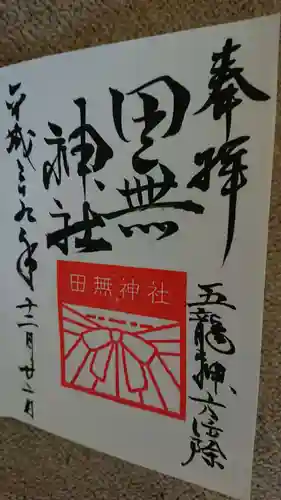 奉拝
五龍神、六方除
田無
神社
田無神社
平成二九年十二月廿二月